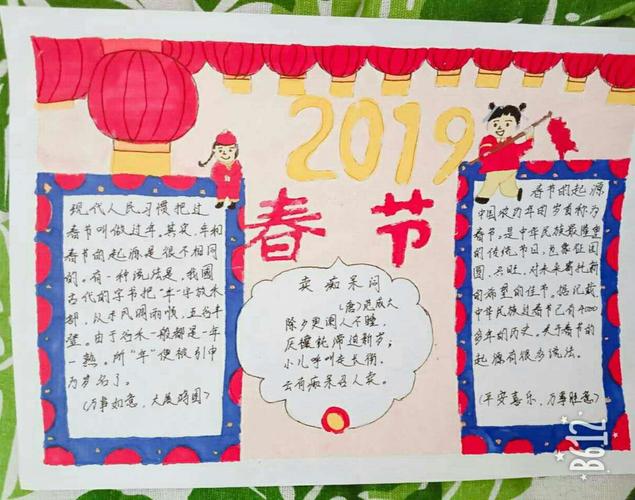 2019
春节
现代人民习惯把过
春节叫做过年。其实，年和
春节的起源是很不相同
的。有一种说法是，我国
古代的字书把“年”字放禾
部，从禾风调雨顺，五谷丰
登。由于谷禾一般都是一年
一熟。所“年”便被引申
为岁名了。
（万事如意，大展鸿图）
卖痴呆问
（唐）范成大
除夕更阑人不睡，
厌禳钝滞迫新岁；
小儿呼叫走长街，
云有痴呆召人卖。
春节的起源
中国农历年的岁首称为
春节。是中华民族最隆重
的传统节日，也象征团
圆、兴旺，对未来寄托新
的希望的佳节。据记载，
中华民族过春节已有4000
多年的历史，关于春节的
起源有很多说法。
（平安喜乐，万事胜意）
B612